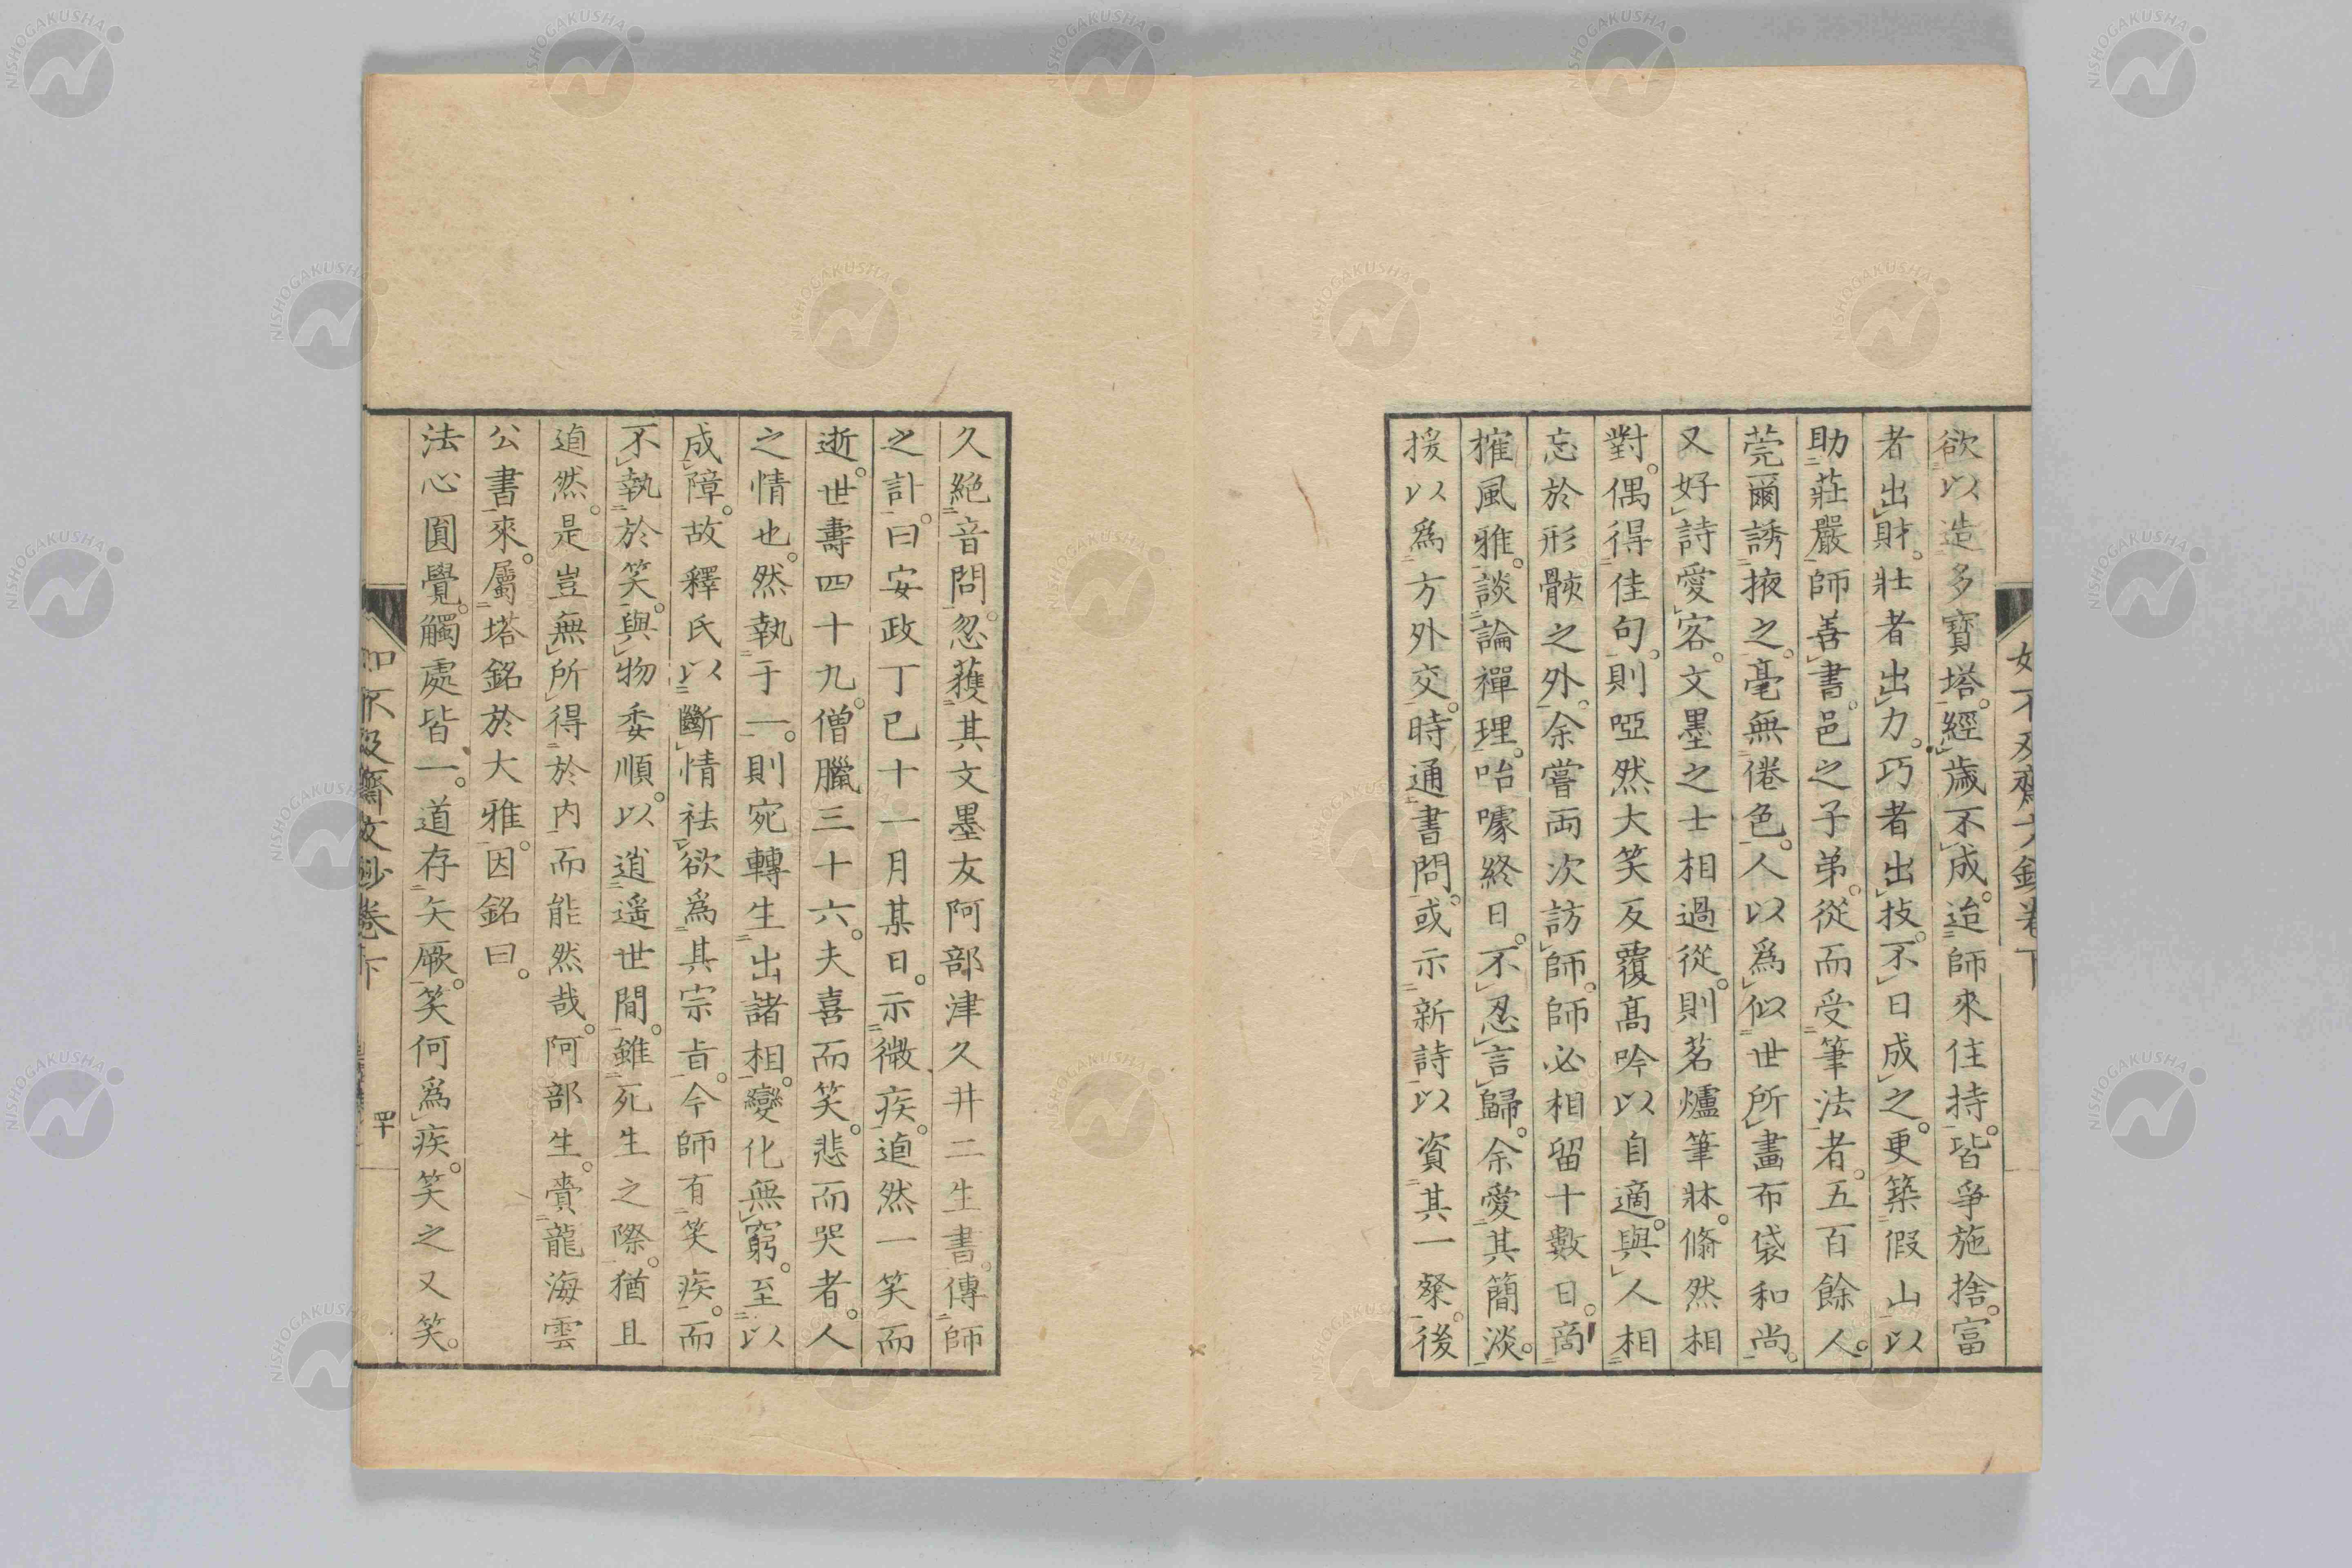 欲以造多寶塔。經歲不成。迨師來住持。皆爭施捨。富
者出財。壯者出力。巧者出技。不日成之。更築假山以
助莊嚴師善書。邑之子弟。從而受筆法者。五百餘人。
莞爾誘掖之。毫無倦色。人以爲似世所畫布袋和尚。
又好詩愛客。文墨之士相過從。則茗爐筆牀。翛然相
對。偶得佳句。則啞然大笑反覆高吟以自適。與人相
忘於形骸之外。余嘗両次訪師。師必相留十數日。商
搉風雅。談論禪理。咍噱終日。不忍言歸。余愛其簡淡。
援以爲方外交。時通書問。或示新詩以資其一粲。後
久絕音問。忽獲其文墨友阿部津久井二生書。傳師
之訃。曰安政丁巳十一月某日。示微疾。逌然一笑而
逝。世壽四十九。僧臘三十六。夫喜而笑。悲而哭者。人
之情也。然執于一。則宛轉生出諸相。變化無窮。至以
成障。故釋氏以斷情祛欲爲其宗旨。今師有笑疾。而
不執於笑。與物委順。以逍遥世間。雖死生之際。猶且
逌然。是豈無所得於内而能然哉。阿部生。賷龍海雲
公書來。屬塔銘於大雅。因銘曰。
法心圓覺。觸處皆一。道存矢厥。笑何爲疾。笑之又笑。
如不及齋文鈔卷下
四十
NISHOGAKUSHA